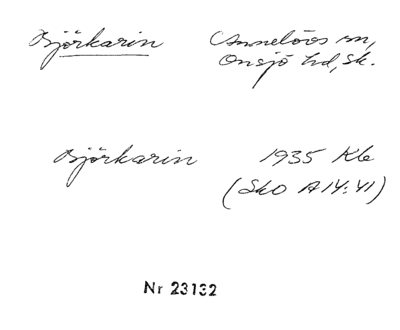 Björkarin Annelövs sn,
Onsjö hd, Sk.
Björkarin 1935 Kle
(Sko A14:41)
Nr 23132